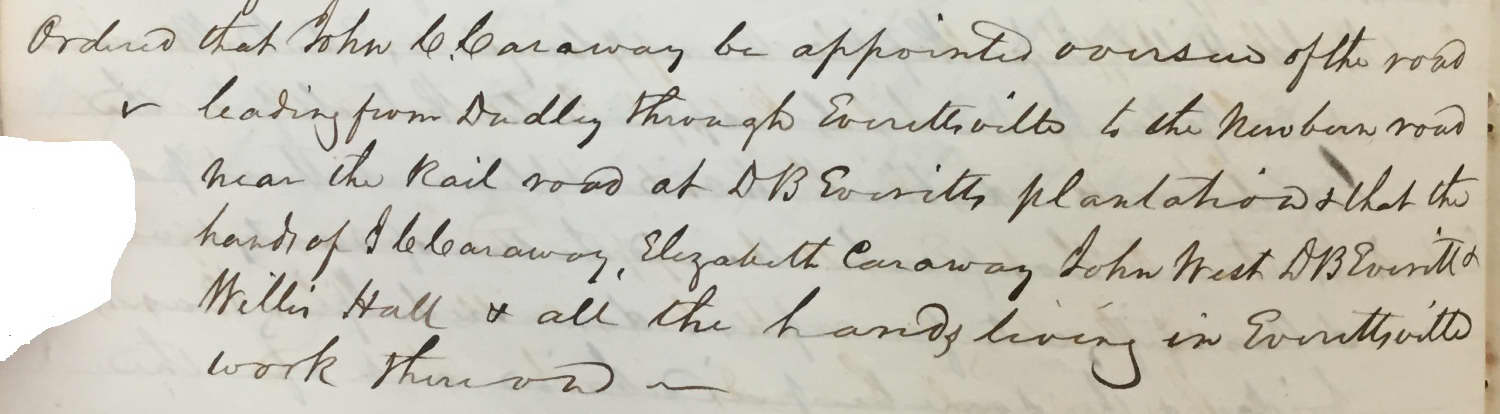 Ordered that John C. Caraway be appointed overseer of the road
leading from Dudley through Everettsville to the Newbern road
near the Rail road at D B Everitts plantation & that the
hands of J C Caraway, Elizabeth Caraway John West D B Everitt &
Willis Hall & all the hands living in Everettsville
work thereon —